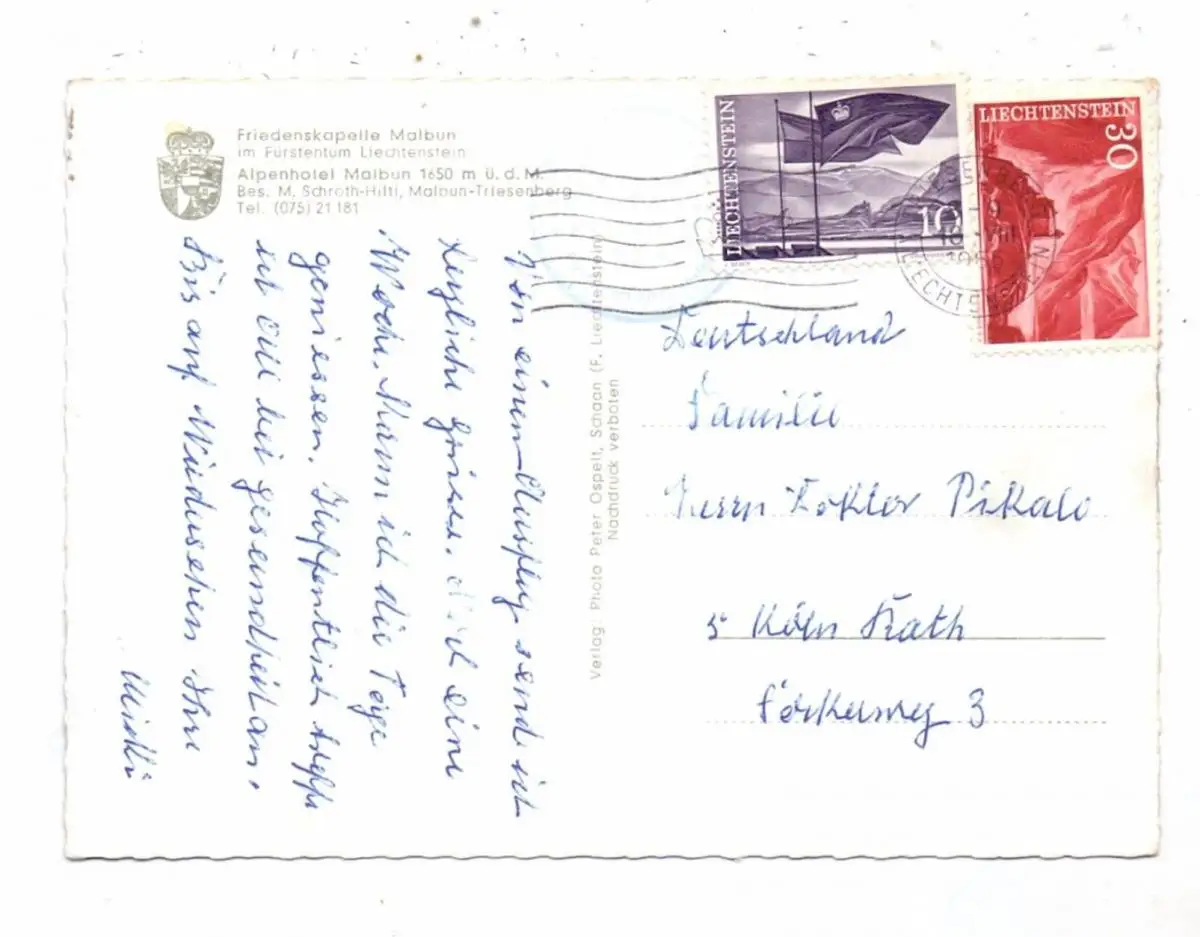 Friedenskapelle Malbun
im Fürstentum Liechtenstein
Alpenhotel Malbun 1650 m ü. d. M.
Bes. M. Schroth-Hilti, Malbun-Triesenberg
Tel. (075) 21 181
Von einem Ausflug send ich
herzliche Grüsse. Noch eine
Woche kann ich die Tage
geniessen. Hoffentlich treffe
ich alle bei Gesundheit an.
Bis auf Wiedersehen Ihre
Verlag: Photo Peter Ospelt, Schaan (F. Liechtenstein)
Nachdruck verboten
LIECHTENSTEIN
10
LIECHTENSTEIN
30
LIECHTENSTEIN
Deutschland
Familie
Herrn Doktor Pikalo
5 Köln Rath
3